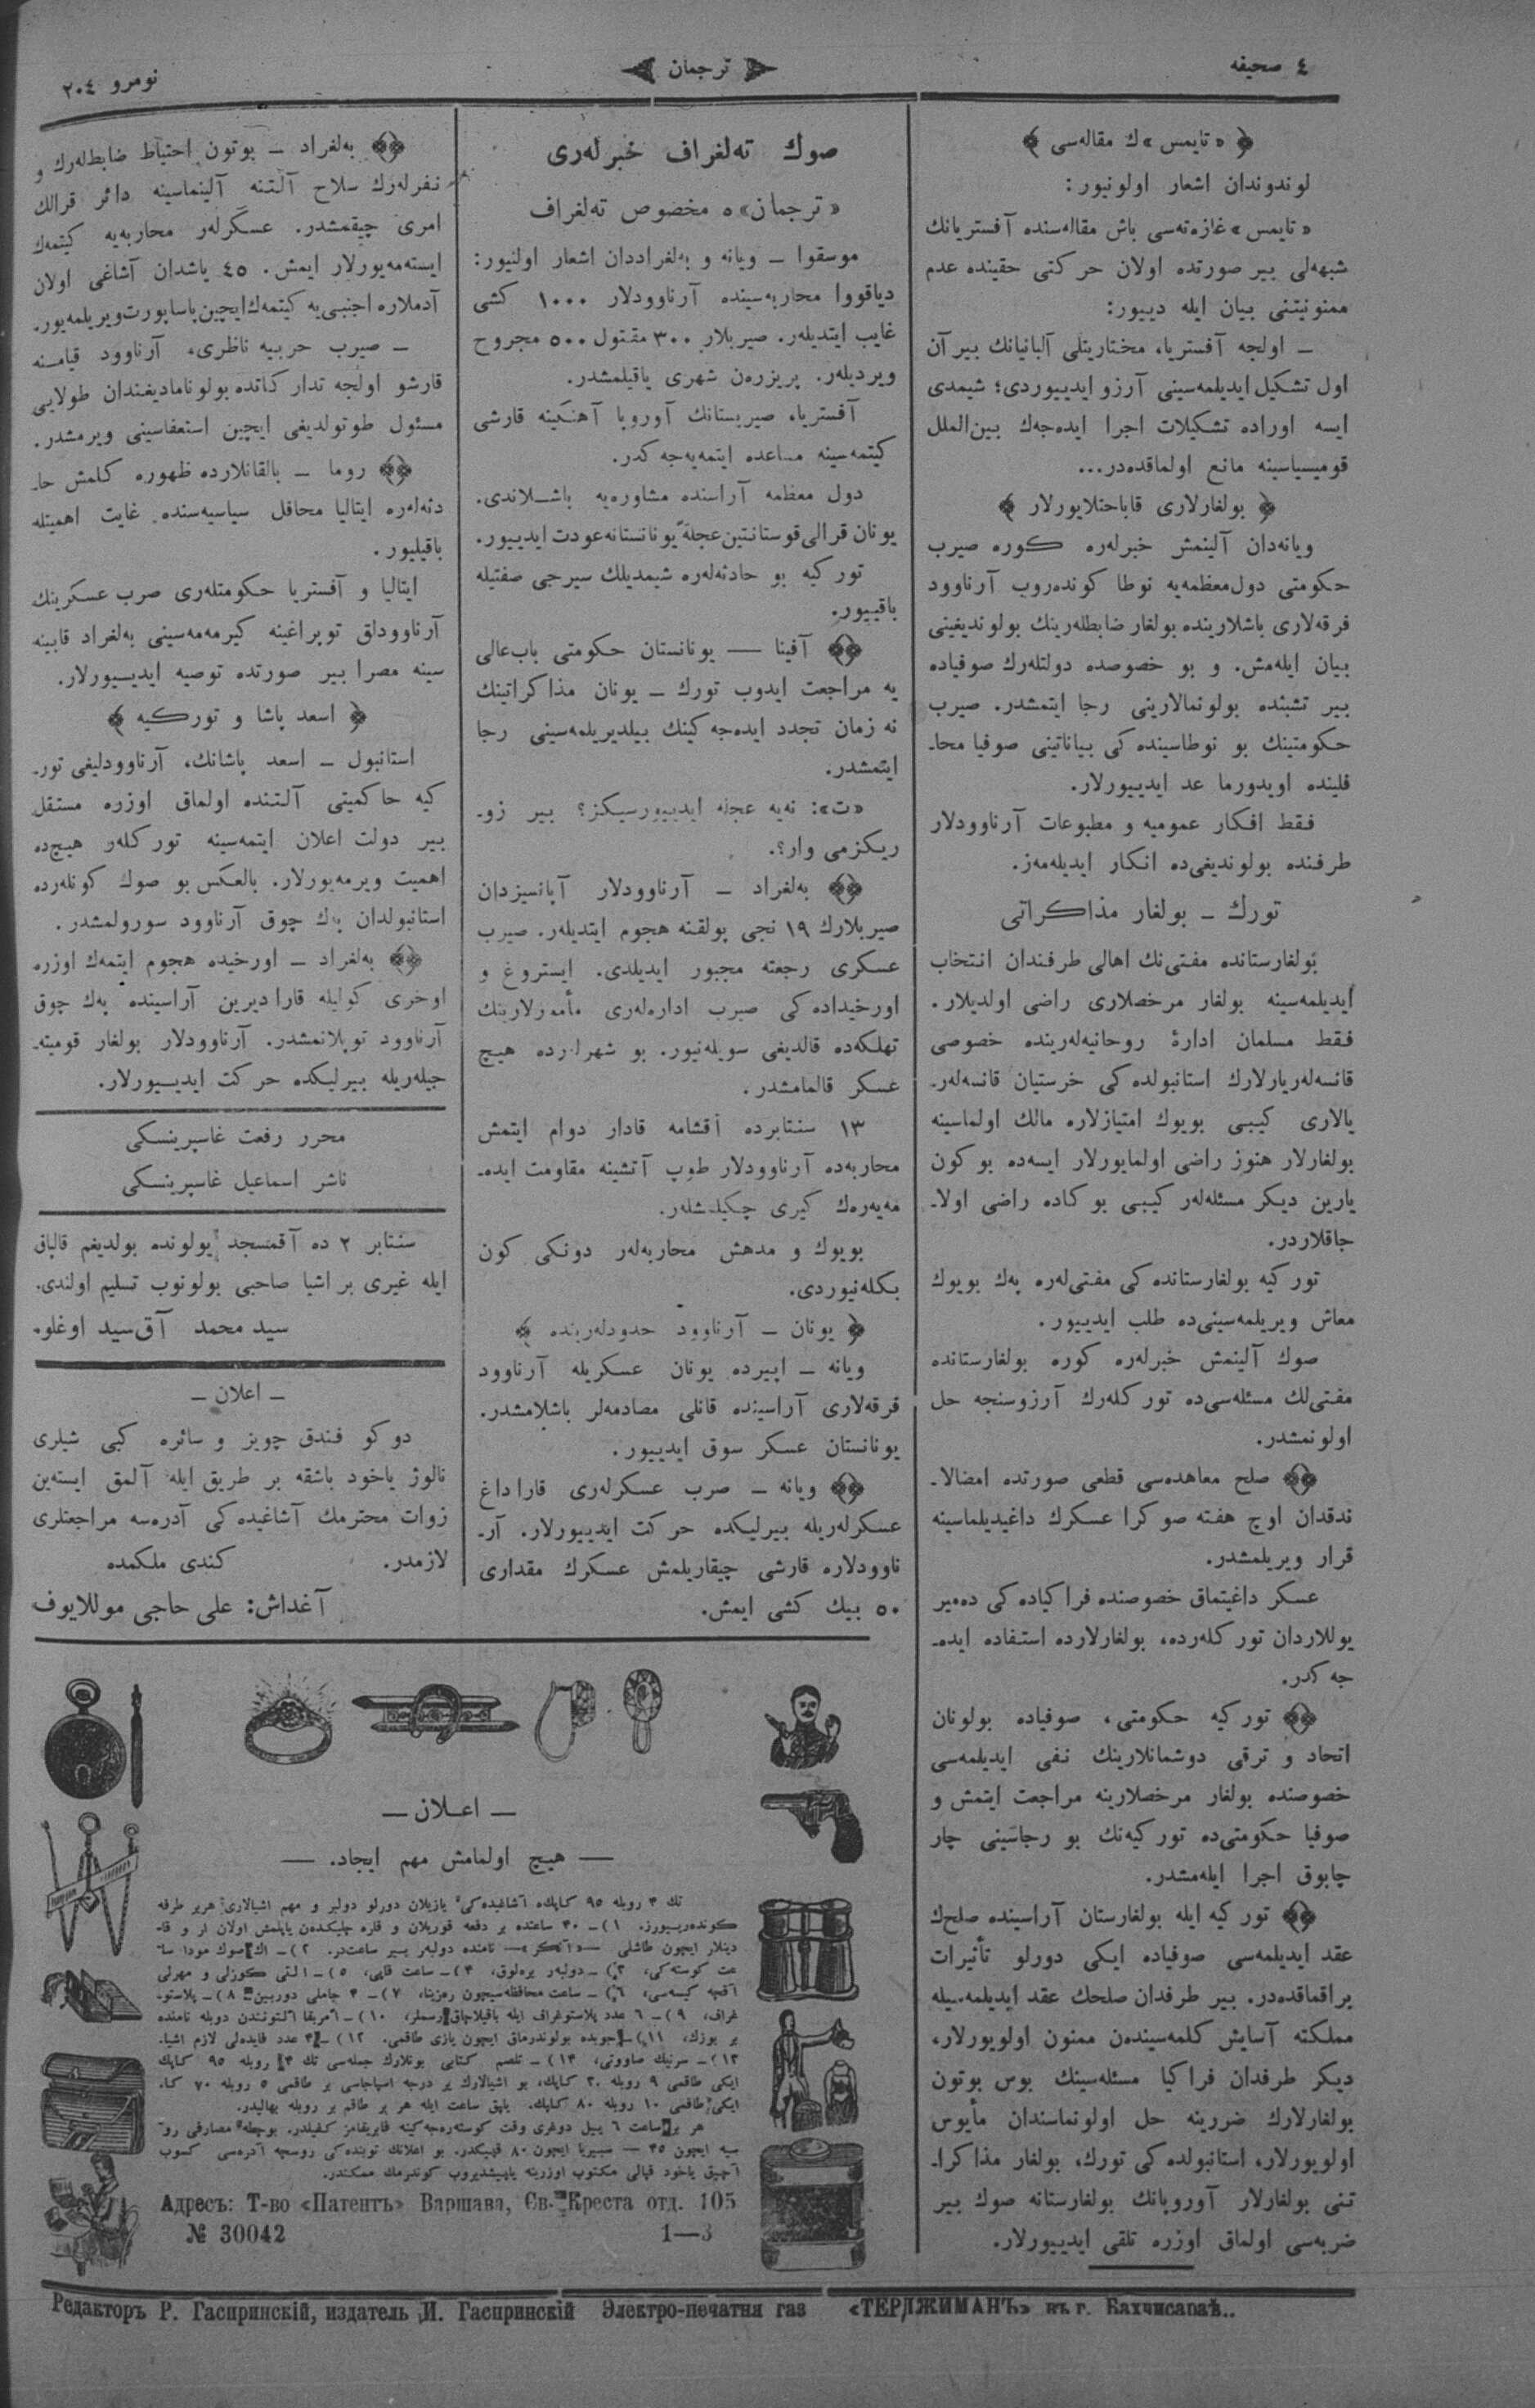 ٤ صحیفه
ترجمان
نومرو ٢٠٤
« تایمس » ك مقاله‌سی
لوندوندان اشعار اولونیور:
« تایمس » غازه‌ته‌سی باش مقاله‌سنده آفستریانك
شبهه‌لی بیر صورتده اولان حركتی حقینده عدم
ممنونیتنی بیان ایله دییور:
ــ اولجه آفستریا، مختاریتلی آلبانیانك بیر آن
اول تشكیل ایدیلمه‌سینی آرزو ایدییوردی؛ شیمدی
ایسه اوراده تشكیلات اجرا ایده‌جه‌ك بین‌الملل
قومیسیاسینه مانع اولماقده‌در...
بولغارلاری قاباحتلایورلار
ویانه‌دان آلینمش خبرله‌ره كوره صیرب
حكومتی دول معظمه‌یه نوطا كونده‌روب آرناوود
فرقه‌لاری باشلارینده بولغار ضابطله‌رینك بولوندیغینی
بیان ایله‌مش. و بو خصوصده دولتله‌رك صوفیاده
بیر تشبثده بولونمالارینی رجا ایتمشدر. صیرب
حكومتینك بو نوطاسینده كی بیاناتینی صوفیا محا-
فلینده اویدورما عد ایدییورلار.
فقط افكار عمومیه و مطبوعات آرناوودلار
طرفنده بولوندیغی‌ده انكار ایدیله‌مه‌ز.
تورك ــ بولغار مذاكراتی
بولغارستانده مفتی‌نك اهالی طرفندان انتخاب
ایدیلمه‌سینه بولغار مرخصلاری راضی اولدیلار.
فقط مسلمان ادارهٔ روحانیه‌له‌رینده خصوصی
قانسه‌له‌ریارلارك استانبولده كی خرستیان قانسه‌له‌ر-
یالاری كیبی بویوك امتیازلاره مالك اولماسینه
بولغارلار هنوز راضی اولمایورلار ایسه‌ده بو كون
یارین دیكر مسئله‌لر كیبی بو كاده راضی اولا-
جاقلاردر.
توركیه بولغارستانده كی مفتی‌له‌ره په‌ك بویوك
معاش ویریلمه‌سینی‌ده طلب ایدییور.
صوك آلینمش خبرله‌ره كوره بولغارستانده
مفتی‌لك مسئله‌سی‌ده توركله‌رك آرزوسنجه حل
اولونمشدر.
صلح معاهده‌سی قطعی صورتده امضالا-
ندقدان اوچ هفته صوكرا عسكرك داغیدیلماسینه
قرار ویریلمشدر.
عسكر داغیتماق خصوصنده فراكیاده كی ده‌میر
یوللاردان توركله‌رده، بولغارلارده استفاده ایده-
جه‌كدر.
توركیه حكومتی، صوفیاده بولونان
اتحاد و ترقی دوشمانلارینك نفی ایدیلمه‌سی
خصوصنده بولغار مرخصلارینه مراجعت ایتمش و
صوفیا حكومتی‌ده توركیه‌نك بو رجاسینی چار
چابوق اجرا ایله‌مشدر.
توركیه ایله بولغارستان آراسینده صلح‌ك
عقد ایدیلمه‌سی صوفیاده ایكی دورلو تأثیرات
براقماقده‌در. بیر طرفدان صلحك عقد ایدیلمه‌سیله
مملكته آسایش كلمه‌سیندن ممنون اولویورلار،
دیكر طرفدان فراكیا مسئله‌سینك بوس بوتون
بولغارلارك ضررینه حل اولونماسندان مأیوس
اولویورلار، استانبولده كی تورك، بولغار مذاكرا-
تنی بولغارلار آوروپانك بولغارستانه صوك بیر
ضربه‌سی اولماق اوزره تلقی ایدییورلار.
صوك ته‌لغراف خبرله‌ری
« ترجمان» ه مخصوص ته‌لغراف
موسقوا ــ ویانه و به‌لغراددان اشعار اولنیور:
دیاقووا محاربه‌سینده آرناوودلار ١٠٠٠ كشی
غایب ایتدیله‌ر. صیربلار ٣٠٠ مقتول ٥٠٠ مجروح
ویردیله‌ر. پریزره‌ن شهری یاقیلمشدر.
آفستریا، صیربستانك آوروپا آهنكینه قارشی
كیتمه‌سینه مساعده ایتمه‌یه‌جه‌كدر.
دول معظمه آراسنده مشاوره‌یه باشـلاندی.
یونان قرالی قوستانتین عجلةً یونانستانه عودت ایدییور.
توركیه بو حادثه‌له‌ره شیمدیلك سیرجی صفتیله
باقییور.
آفینا — یونانستان حكومتی باب‌عالی
یه مراجعت ایدوب تورك ــ یونان مذاكراتینك
نه زمان تجدد ایده‌جه‌كینك بیلدیریلمه‌سینی رجا
ایتمشدر.
«ت»: نه‌یه عجله ایدییورسیكز؟ بیر زو-
ریكزمی وار؟.
به‌لغراد ــ آرناوودلار آپانسیزدان
صیربلارك ١٩ نجی پولقنه هجوم ایتدیله‌ر. صیرب
عسكری رجعته مجبور ایدیلدی. ایستروغ و
اورخیداده كی صیرب اداره‌له‌ری مأمورلارینك
تهلكه‌ده قالدیغی سویله‌نیور. بو شهرلرده هیچ
عسكر قالمامشدر.
١٣ سنتابرده آقشامه قادار دوام ایتمش
محاربه‌ده آرناوودلار طوپ آتشینه مقاومت ایده-
مه‌یه‌ره‌ك كیری چكیلمشله‌ر.
بویوك و مدهش محاربه‌له‌ر دونكی كون
بكله‌نیوردی.
یونان ــ آرناوود حدودله‌رینده
ویانه ــ اپیرده یونان عسكریله آرناوود
فرقه‌لاری آراسینده قانلی مصادمه‌لر باشلامشدر.
یونانستان عسكر سوق ایدییور.
ویانه ــ صرب عسكرله‌ری قاراداغ
عسكرله‌ریله بیرلیكده حركت ایدییورلار. آر-
ناوودلاره قارشی چیقاریلمش عسكرك مقداری
٥٠ بیك كشی ایمش.
به‌لغراد ــ بوتون احتیاط ضابط‌له‌رك و
نفرله‌رك سلاح آلتنه آلینماسینه دائر قرالك
امری چیقمشدر. عسكرله‌ر محاربه‌یه كیتمه‌ك
ایسته‌مه‌یورلار ایمش. ٤٥ یاشدان آشاغی اولان
آدملاره اجنبی‌یه كیتمه‌ك ایچین پاساپورت ویریلمه‌یور.
ــ صیرب حربیه ناظری، آرناوود قیامنه
قارشو اولجه تداركاتده بولونامادیغندان طولایی
مسئول طوتولدیغی ایچین استعفاسینی ویرمشدر.
روما ــ بالقانلارده ظهوره كلمش حا-
دثه‌له‌ره ایتالیا محافل سیاسیه‌سنده غایت اهمیتله
باقیلیور.
ایتالیا و آفستریا حكومتله‌ری صرب عسكرینك
آرناوودلق توپراغینه كیرمه‌مه‌سینی به‌لغراد قابینه
سینه مصرا بیر صورتده توصیه ایدییورلار.
اسعد پاشا و توركیه
استانبول ــ اسعد پاشانك، آرناوودلیغی تور-
كیه حاكمیتی آلتنده اولماق اوزره مستقل
بیر دولت اعلان ایتمه‌سینه توركله‌ر هیچ‌ده
اهمیت ویرمه‌یورلار. بالعكس بو صوك كونله‌رده
استانبولدان په‌ك چوق آرناوود سورولمشدر.
به‌لغراد ــ اورخیده هجوم ایتمه‌ك اوزره
اوخری كولیله قارا دیرین آراسینده په‌ك چوق
آرناوود توپلانمشدر. آرناوودلار بولغار قومیته-
جیله‌ریله بیرلیكده حركت ایدییورلار.
محرر رفعت غاسپرینسكی
ناشر اسماعیل غاسپرینسكی
سنتابر ٢ ده آقمسجد یولونده بولدیغم قالپاق
ایله غیری بر اشیا صاحبی بولونوب تسلیم اولندی.
سید محمد آق‌سید اوغلو.
ــ اعلان ــ
دوكو فندق چویز و سائره كبی شیلری
نالوژ یاخود باشقه بر طریق ایله آلمق ایسته‌ین
زوات محترمك آشاغیده كی آدره‌سه مراجعتلری
لازمدر. كندی ملكمده
آغداش: علی حاجی موللایوف
— اعـلان —
— هیچ اولمامش مهم ایجاد. —
Адресъ: Т-во «Патентъ» Варшава, Св.-Креста отд. 105
№ 30042 1—3
Редакторъ Р. Гаспринскій, издатель И. Гаспринскій Электро-печатня газ «ТЕРДЖИМАНЪ» въ г. Бахчисараѣ..